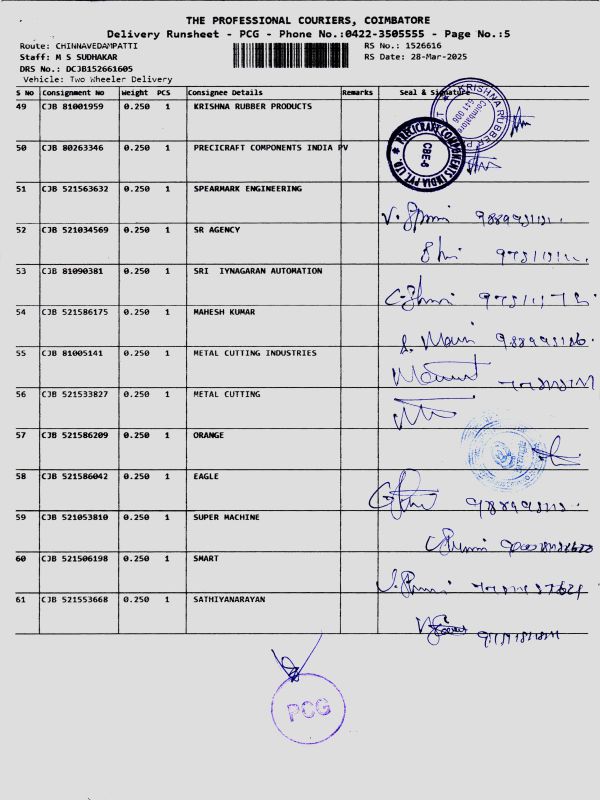 THE PROFESSIONAL COURIERS, COIMBATORE
Delivery Runsheet - PCG - Phone No.:0422-3505555 - Page No.:5
Route: CHINNAVEDAMPATTI RS No.: 1526616
Staff: M S SUDHAKAR RS Date: 28-Mar-2025
DRS No.: DCJB152661605
Vehicle: Two Wheeler Delivery
S NO Consignment No Weight PCS Consignee Details Remarks Seal & Signature
49 CJB 81001959 0.250 1 KRISHNA RUBBER PRODUCTS
KRISHNA RUBBER Coimbatore 641 006
50 CJB 80263346 0.250 1 PRECICRAFT COMPONENTS INDIA PV
PRECICRAFT COMPONENTS INDIA PVT. LTD. CBE-6
51 CJB 521563632 0.250 1 SPEARMARK ENGINEERING
52 CJB 521034569 0.250 1 SR AGENCY
53 CJB 81090381 0.250 1 SRI IYNAGARAN AUTOMATION
54 CJB 521586175 0.250 1 MAHESH KUMAR
55 CJB 81005141 0.250 1 METAL CUTTING INDUSTRIES
56 CJB 521533827 0.250 1 METAL CUTTING
57 CJB 521586209 0.250 1 ORANGE
58 CJB 521586042 0.250 1 EAGLE
59 CJB 521053810 0.250 1 SUPER MACHINE
60 CJB 521506198 0.250 1 SMART
61 CJB 521553668 0.250 1 SATHIYANARAYAN
PCG